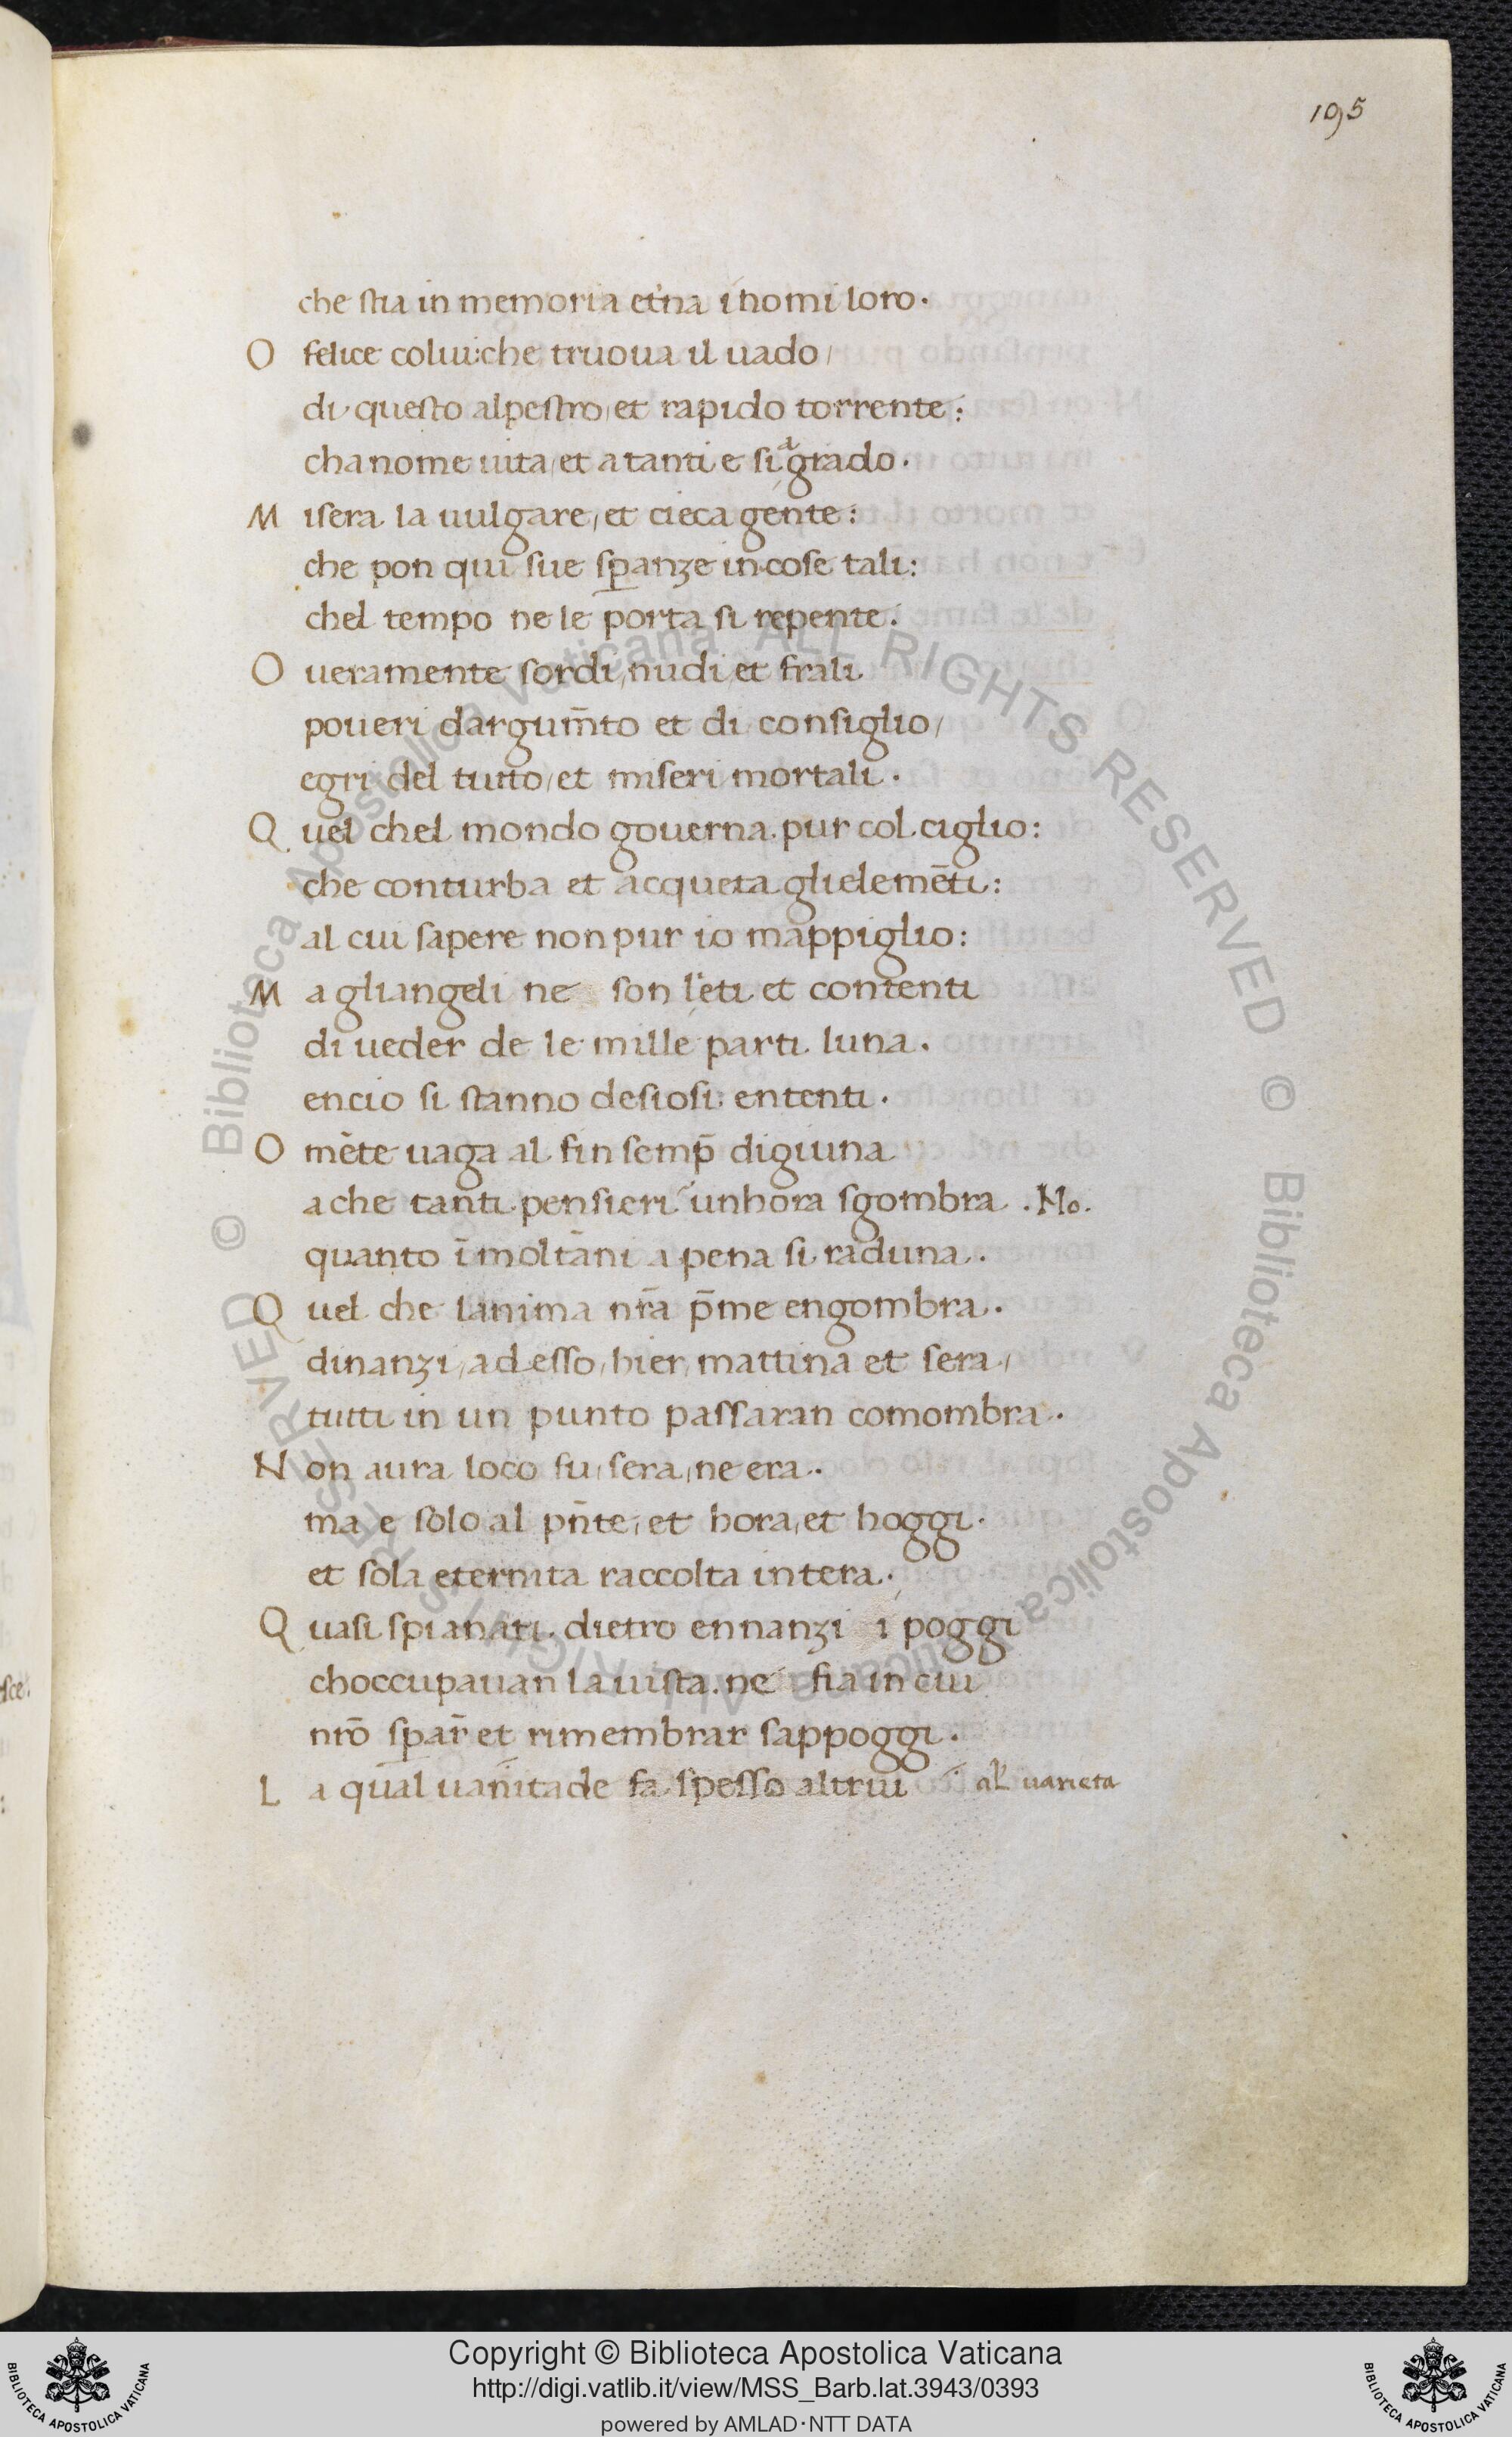 195
che stia in memoria et̕na i nomi loro.
O felice colui: che truoua il uado/
di questo alpestro, et rapido torrente:
cha nome uita, et a tanti e si a grado.
M isera la uulgare, et cieca gente:
che pon qui sue sꝑanze in cose tali:
chel tempo ne le porta si repente.
O ueramente sordi, nudi, et frali
poueri dargum̄to et di consiglio/
egri del tutto, et miseri mortali.
Q uel chel mondo gouerna pur col ciglio:
che conturba et acqueta gli elemēti:
al cui sapere non pur io mappiglio:
M a gliangeli ne son leti et contenti
di ueder de le mille parti luna.
encio si stanno desiosi: ententi.
O mēte uaga al fin semp̄ digiuna
a che tanti pensieri unhora sgombra . No.
quanto ī moltāni a pena si raduna.
Q uel che lanima nr̄a p̄me engombra.
dinanzi, adesso, hier, mattina et sera,
tutti in un punto passaran comombra.
N on aura loco fu, sera, ne era.
ma e solo al pn̄te, et hora, et hoggi.
et sola eternita raccolta intera.
Q uasi spianati dietro ennanzi i poggi
choccupauan la uista. ne fia in cui
nrō sꝑar̄ et rimembrar sappoggi.
L a qual uanitade fa spesso altrui al' uarieta
© Biblioteca Apostolica Vaticana ALL RIGHTS RESERVED © Biblioteca Apostolica Vaticana ALL RIGHTS RESERVED
Copyright © Biblioteca Apostolica Vaticana
http://digi.vatlib.it/view/MSS_Barb.lat.3943/0393
powered by AMLAD·NTT DATA
BIBLIOTECA APOSTOLICA VATICANA
BIBLIOTECA APOSTOLICA VATICANA